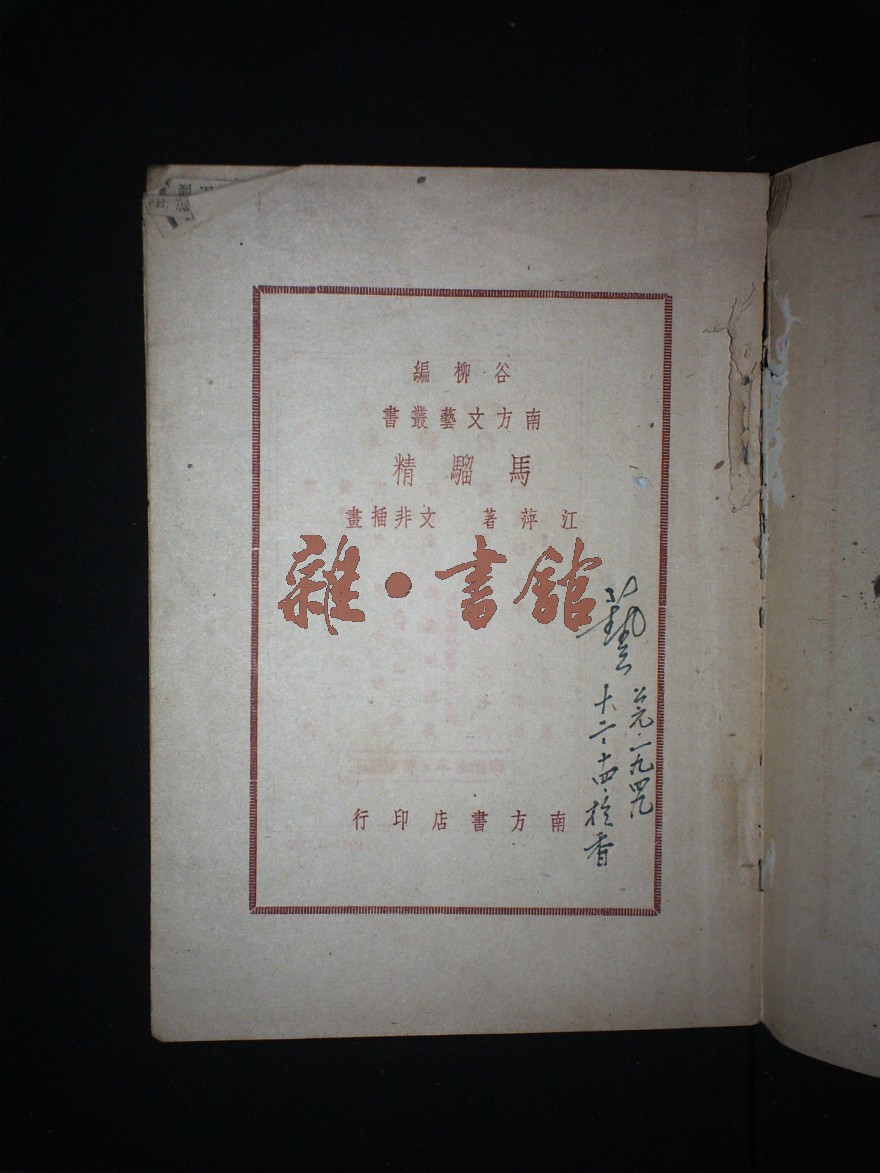 谷柳編
南方文藝叢書
馬騮精
江萍著 文非插畫
雜·書館
藝 公元·一九四九
十二·十四·於香
南方書店印行